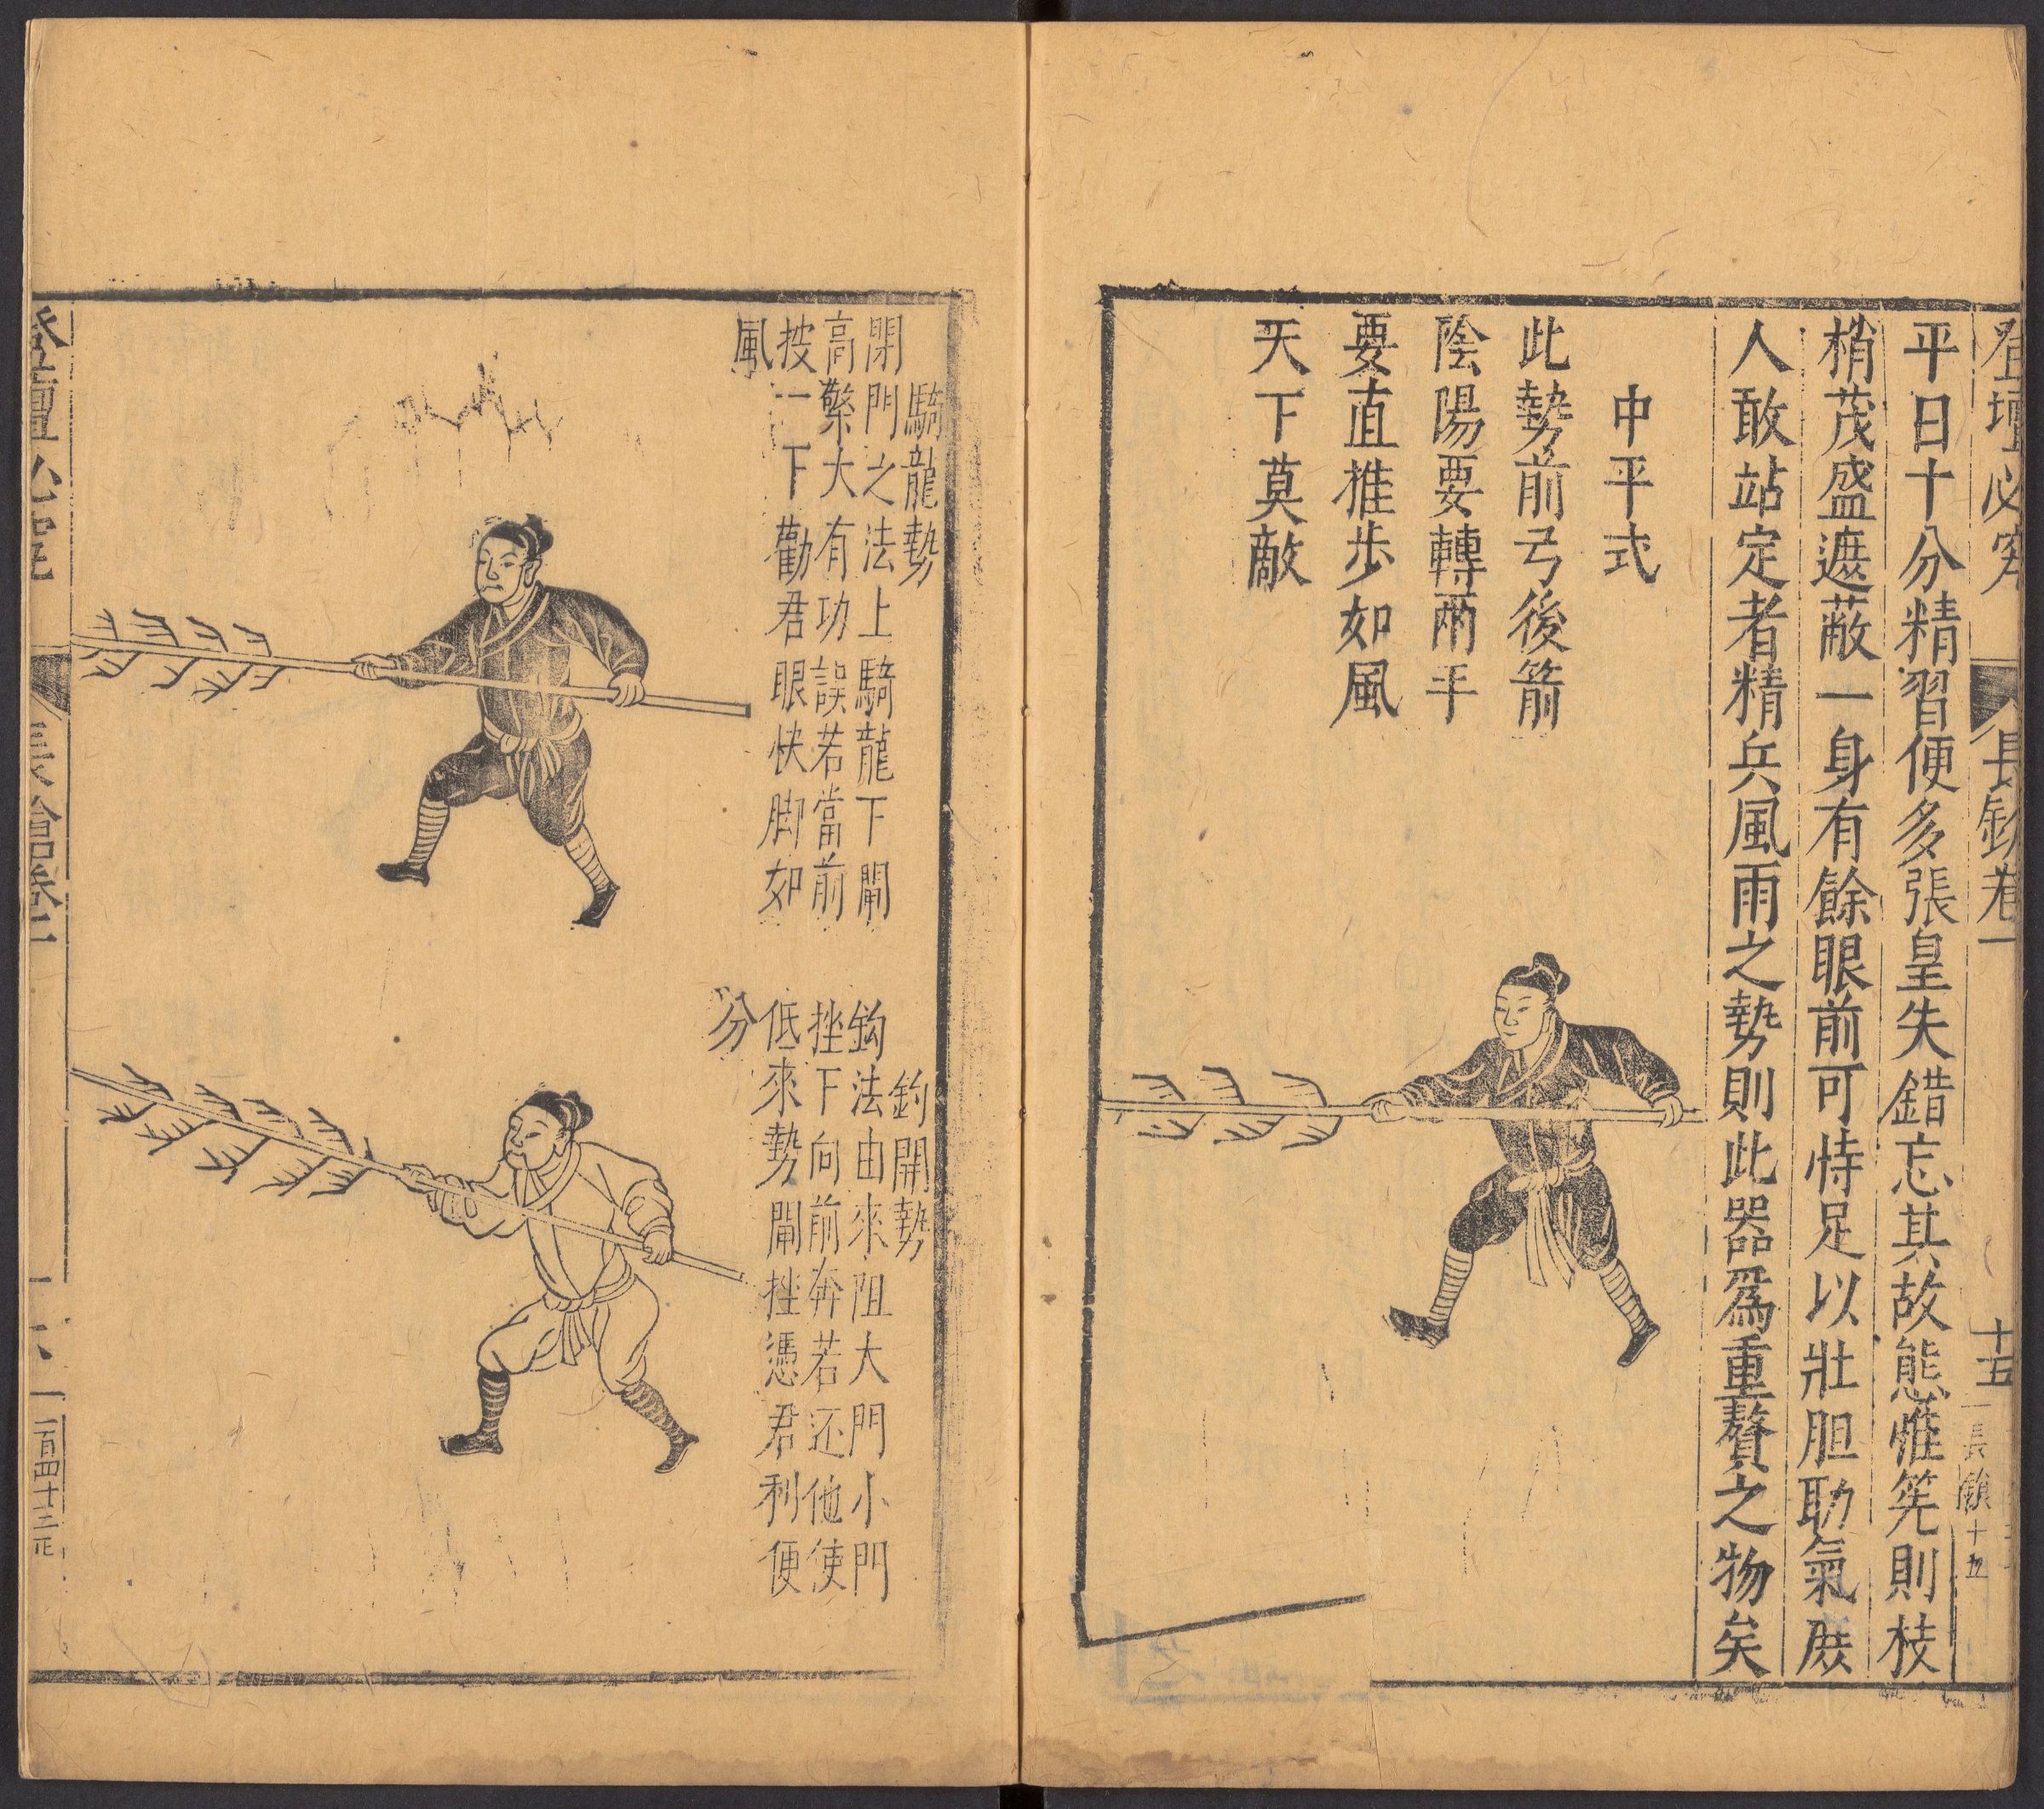 登壇必究
長鎗卷一
十五
長鎗十五
平日十分精習便多張皇失錯忘其故態惟筅則枝
梢茂盛遮蔽一身有餘眼前可恃足以壯胆助氣庶
人敢站定者精兵風雨之勢則此器爲重贅之物矣
中平式
此勢前弓後箭
陰陽要轉兩手
要直推步如風
天下莫敵
騎龍勢
閉門之法上騎龍下閘
高繁大有功誤若當前
披一下勸君眼快脚如
風
鈎開勢
鈎法由來阻大門小門
挫下向前奔若还他使
低來勢閘挫憑君利便
分
長鎗卷一
二百四十三正